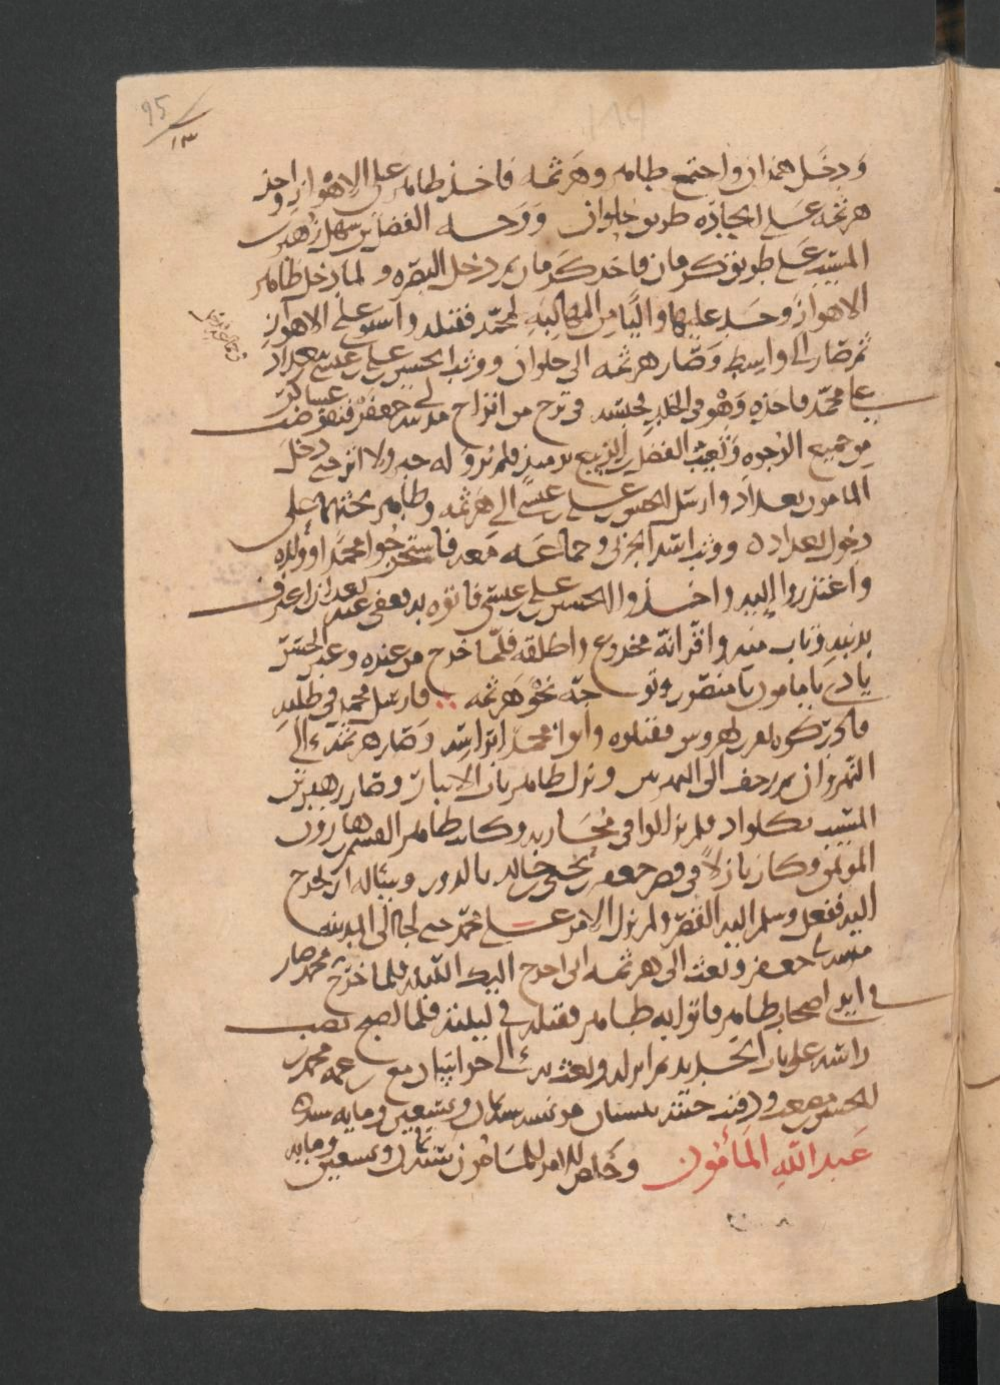 95
١٣
ودخل همدان واجتمع طاهر وهرثمه فاخذ طاهر على الاهواز واخذ
هرثمه على الجادة طريق حلوان ووجه الفضل بن سهل زهير بن
المسيب على طريق كرمان فاخذ كرمان ثم دخل البصره ولما دخل طاهر
الاهواز وجد عليها واليا من المهالبه لمحمد فقتله واستولى على الاهواز
ثم صار الى واسط وصار هرثمه الى حلوان ووثب الحسين بن علي بن عيسى ببغداد
على محمد فاخذه وهو في الخلد فحبسه في برج من ابراج مدينه ابي جعفر فتقوضت عساكر
من جميع الوجوه وتغيب الفضل بن الربيع يومئذ فلم يرو له خبر ولا اثر حتى دخل
المامون بغداد وارسل الحسين بن علي بن عيسى الى هرثمه وطاهر يحثهما على
دخول بغداد ووثب اسد الحربي وجماعه معه فاستخرجوا محمدا وولده
واعتذروا اليه واخذوا الحسين بن علي بن عيسى فاتوه به فعفى عنه بعد ان اعترف
بذنبه وتاب منه واقر انه مخدوع واطلقه فلما خرج من عنده وعبر الجسر
نادى يا مامون يا منصور وتوجه نحو هرثمه فارسل محمد في طلبه
فادركوه بقرب نهروين فقتلوه واتوا محمدا براسه وصار هرثمه الى
النهروان ثم زحف الى نهر بين ونزل طاهر باب الانبار وصار زهير بن
المسيب بكلواذ فلم يزالوا في محاربه وكاتب طاهر القسم بن هارون
المؤتمن وكان نازلا في قصر جعفر بن يحيى بن خالد بالدور وساله ان يخرج
اليه ففعل وسلم اليه القصر ولم يزل الامر على محمد حتى لجا الى المدينه
مدينه ابي جعفر وبعث الى هرثمه اني اخرج اليك الليله فلما خرج محمد صار
في ايدي اصحاب طاهر فاتوا به طاهر فقتله في ليلته فلما اصبح نصب
راسه على باب الحديد ثم انزله وبعث به الى خراسان مع ابن عمه محمد بن
الحسن بن مصعب ودفنت جثته ببستان مونسه سنه ثمان وتسعين ومايه سنه
عبد الله المأمون وخلص الامر للمامون سنه ثمان وتسعين ومايه